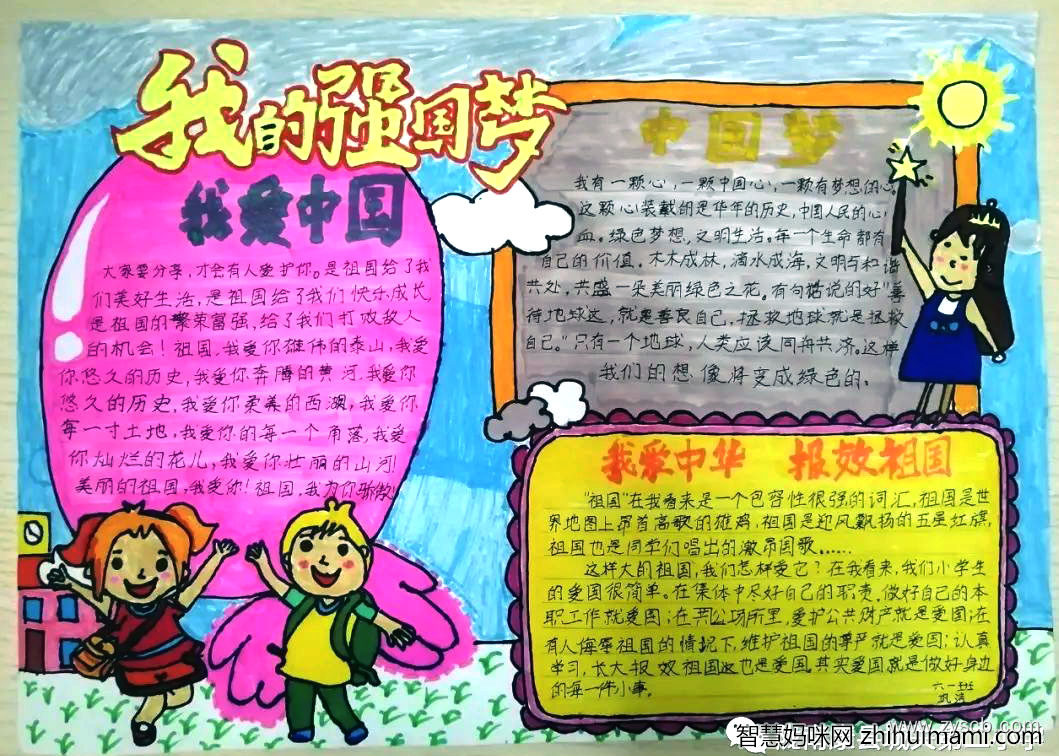 我的强国梦
我爱中国
大家要分享，才会有人爱护你。是祖国给了我
们美好生活，是祖国给了我们快乐成长
是祖国的繁荣富强，给了我们打败敌人
的机会！祖国，我爱你雄伟的泰山，我爱
你悠久的历史，我爱你奔腾的黄河，我爱你
悠久的历史，我爱你柔美的西湖，我爱你
每一寸土地，我爱你的每一个角落，我爱
你灿烂的花儿，我爱你壮丽的山河！
美丽的祖国，我爱你！祖国，我为你骄傲！
中国梦
我有一颗心，一颗中国心，一颗有梦想的心。
这颗心装戴的是华年的历史，中国人民的心
血。绿色梦想，文明生活。每一个生命都有
自己的价值。木木成林，滴水成海，文明与和谐
共处，共盛一朵美丽绿色之花。有句话说的好“善
待地球这，就是善良自己，拯救地球就是拯救
自己。”只有一个地球，人类应该同舟共济。这样
我们的想像将变成绿色的。
我爱中华 报效祖国
“祖国”在我看来是一个包容性很强的词汇，祖国是世
界地图上昂首高歌的雄鸡，祖国是迎风飘扬的五星红旗，
祖国也是同学们唱出的激昂国歌……
这样大的祖国，我们怎样爱它？在我看来，我们小学生
的爱国很简单。在集体中尽好自己的职责，做好自己的本
职工作就爱国；在公共场所里，爱护公共财产就是爱国；在
有人侮辱祖国的情况下，维护祖国的尊严就是爱国；认真
学习，长大报效祖国这也是爱国。其实爱国就是做好身边
的每一件小事。
六一班
智慧妈咪网 zhihuimami.com